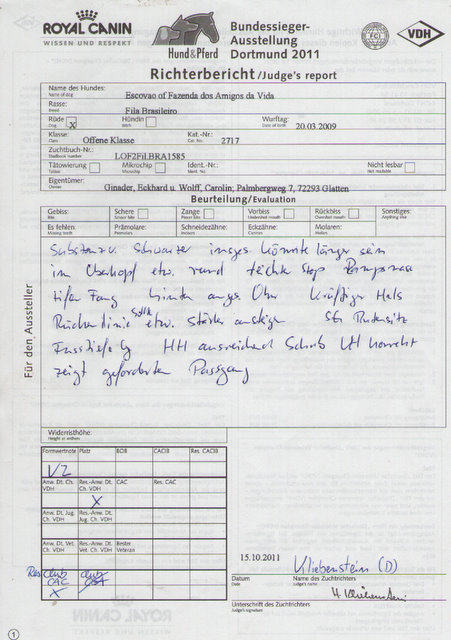 ROYAL CANIN
WISSEN UND RESPEKT
Hund&Pferd
Bundessieger-
Ausstellung
Dortmund 2011
FCI
VDH
Richterbericht/Judge's report
Name des Hundes:
Name of dog
Escovao of Fazenda dos Amigos da Vida
Rasse:
Breed
Fila Brasileiro
Rüde X Hündin Wurftag:
Dog Bitch Date of birth 20.03.2009
Klasse: Kat.-Nr.:
Class Offene Klasse Cat. No. 2717
Zuchtbuch-Nr.:
Studbook number LOF2FILBRA1585
Tätowierung Mikrochip Ident.-Nr. Nicht lesbar
Tattoo Microchip Ident. No. Not readable
Eigentümer:
Owner Ginader, Eckhard u. Wolff, Carolin; Palmbergweg 7, 72293 Glatten
Beurteilung/Evaluation
Gebiss: Schere Zange Vorbiss Rückbiss Sonstiges:
Bite Scissor Pincer Undershot Overshot Anything else
Es fehlen: Prämolare: Schneidezähne: Eckzähne: Molaren:
Missing teeth Premolars Incisors Canines Molars
Substanzv. Schwarzer insges. könnte länger sein
im Oberkopf etw. rund leichte Stop
tiefer Fang hinten anges. Ohr kräftiger Hals
Rückenlinie sollte etw. stärker ansteigen SG Rutensitz
Brusttiefe HH ausreichend korrekt
zeigt geforderten Passgang
Für den Aussteller
Widerristhöhe:
Height at withers
Formwertnote Platz BOB CACIB Res. CACIB
V2
Anw. Dt. Ch. VDH Res.-Anw. Dt. Ch. VDH CAC Res. CAC
X
Anw. Dt. Jug. Ch. VDH Res.-Anw. Dt. Jug. Ch. VDH
Anw. Dt. Vet. Ch. VDH Res.-Anw. Dt. Vet. Ch. VDH Bester Veteran
Res club CAC X
15.10.2011 Kliebenstein (D)
Datum Name des Zuchtrichters
Date Judge's name
Unterschrift des Zuchtrichters
Judge's signature
ROYAL CANIN
1